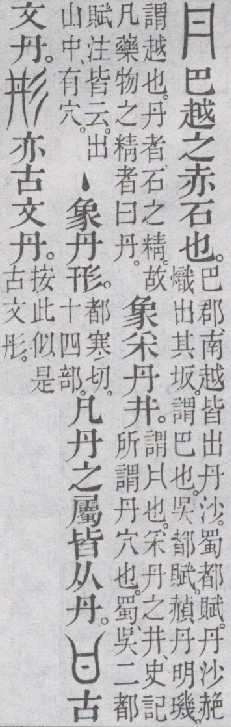 巴越之赤石也。巴郡南越皆出丹沙。蜀都賦。丹沙赩熾出其坂。謂巴也。吳都賦。赬丹明璣。
謂越也。丹者石之精。故凡藥物之精者曰丹。象采丹井。謂也。采丹之井、史記所謂丹穴也。蜀吳二都
賦注皆云。出山中。有穴。丶象丹形。都寒切。十四部。凡丹之屬皆从丹。古
文丹。彤亦古文丹。按此似是古文彤。